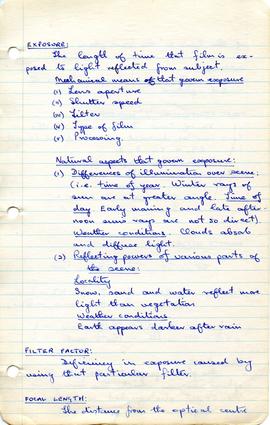 EXPOSURE:
The length of time that film is ex-
posed to light reflected from subject.
Mechanical means of that govern exposure
(i) Lens aperture
(ii) Shutter speed
(iii) Filter
(iv) Type of film
(v) Processing.
Natural aspects that govern exposure:
(1) Differences of illumination over scene:
(i.e. time of year. Winter rays of
sun are at greater angle. Time of
day Early morning and late after-
noon suns rays are not so direct)
Weather conditions. Clouds absorb
and diffuse light.
(2) Reflecting powers of various parts of
the scene:
Locality
Snow, sand and water reflect more
light than vegetation
Weather conditions
Earth appears darker after rain
FILTER FACTOR:
Deficiency in exposure caused by
using that particular filter.
FOCAL LENGTH:
The distance from the optical centre